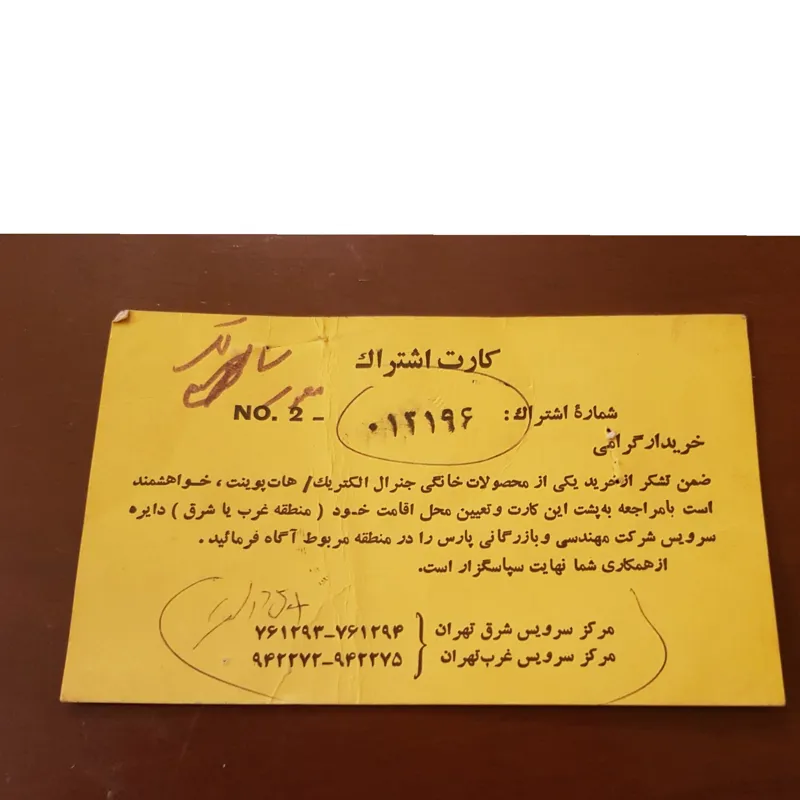 کارت اشتراك
شمارهٔ اشتراك: ۰۱۲۱۹۶ NO. 2 –
خریدار گرامی
ضمن تشکر از خرید یکی از محصولات خانگی جنرال الکتریك / هات‌پوینت ، خـواهشمند
است بامراجعه به‌پشت این کارت و تعیین محل اقامت خـود ( منطقه غرب یا شرق ) دایره
سرویس شرکت مهندسی و بازرگانی پارس را در منطقه مربوط آگاه فرمائید .
از همکاری شما نهایت سپاسگزار است.
مرکز سرویس شرق تهران ۷۶۱۲۹۳–۷۶۱۲۹۴
مرکز سرویس غرب تهران ۹۴۲۲۷۲–۹۴۲۲۷۵